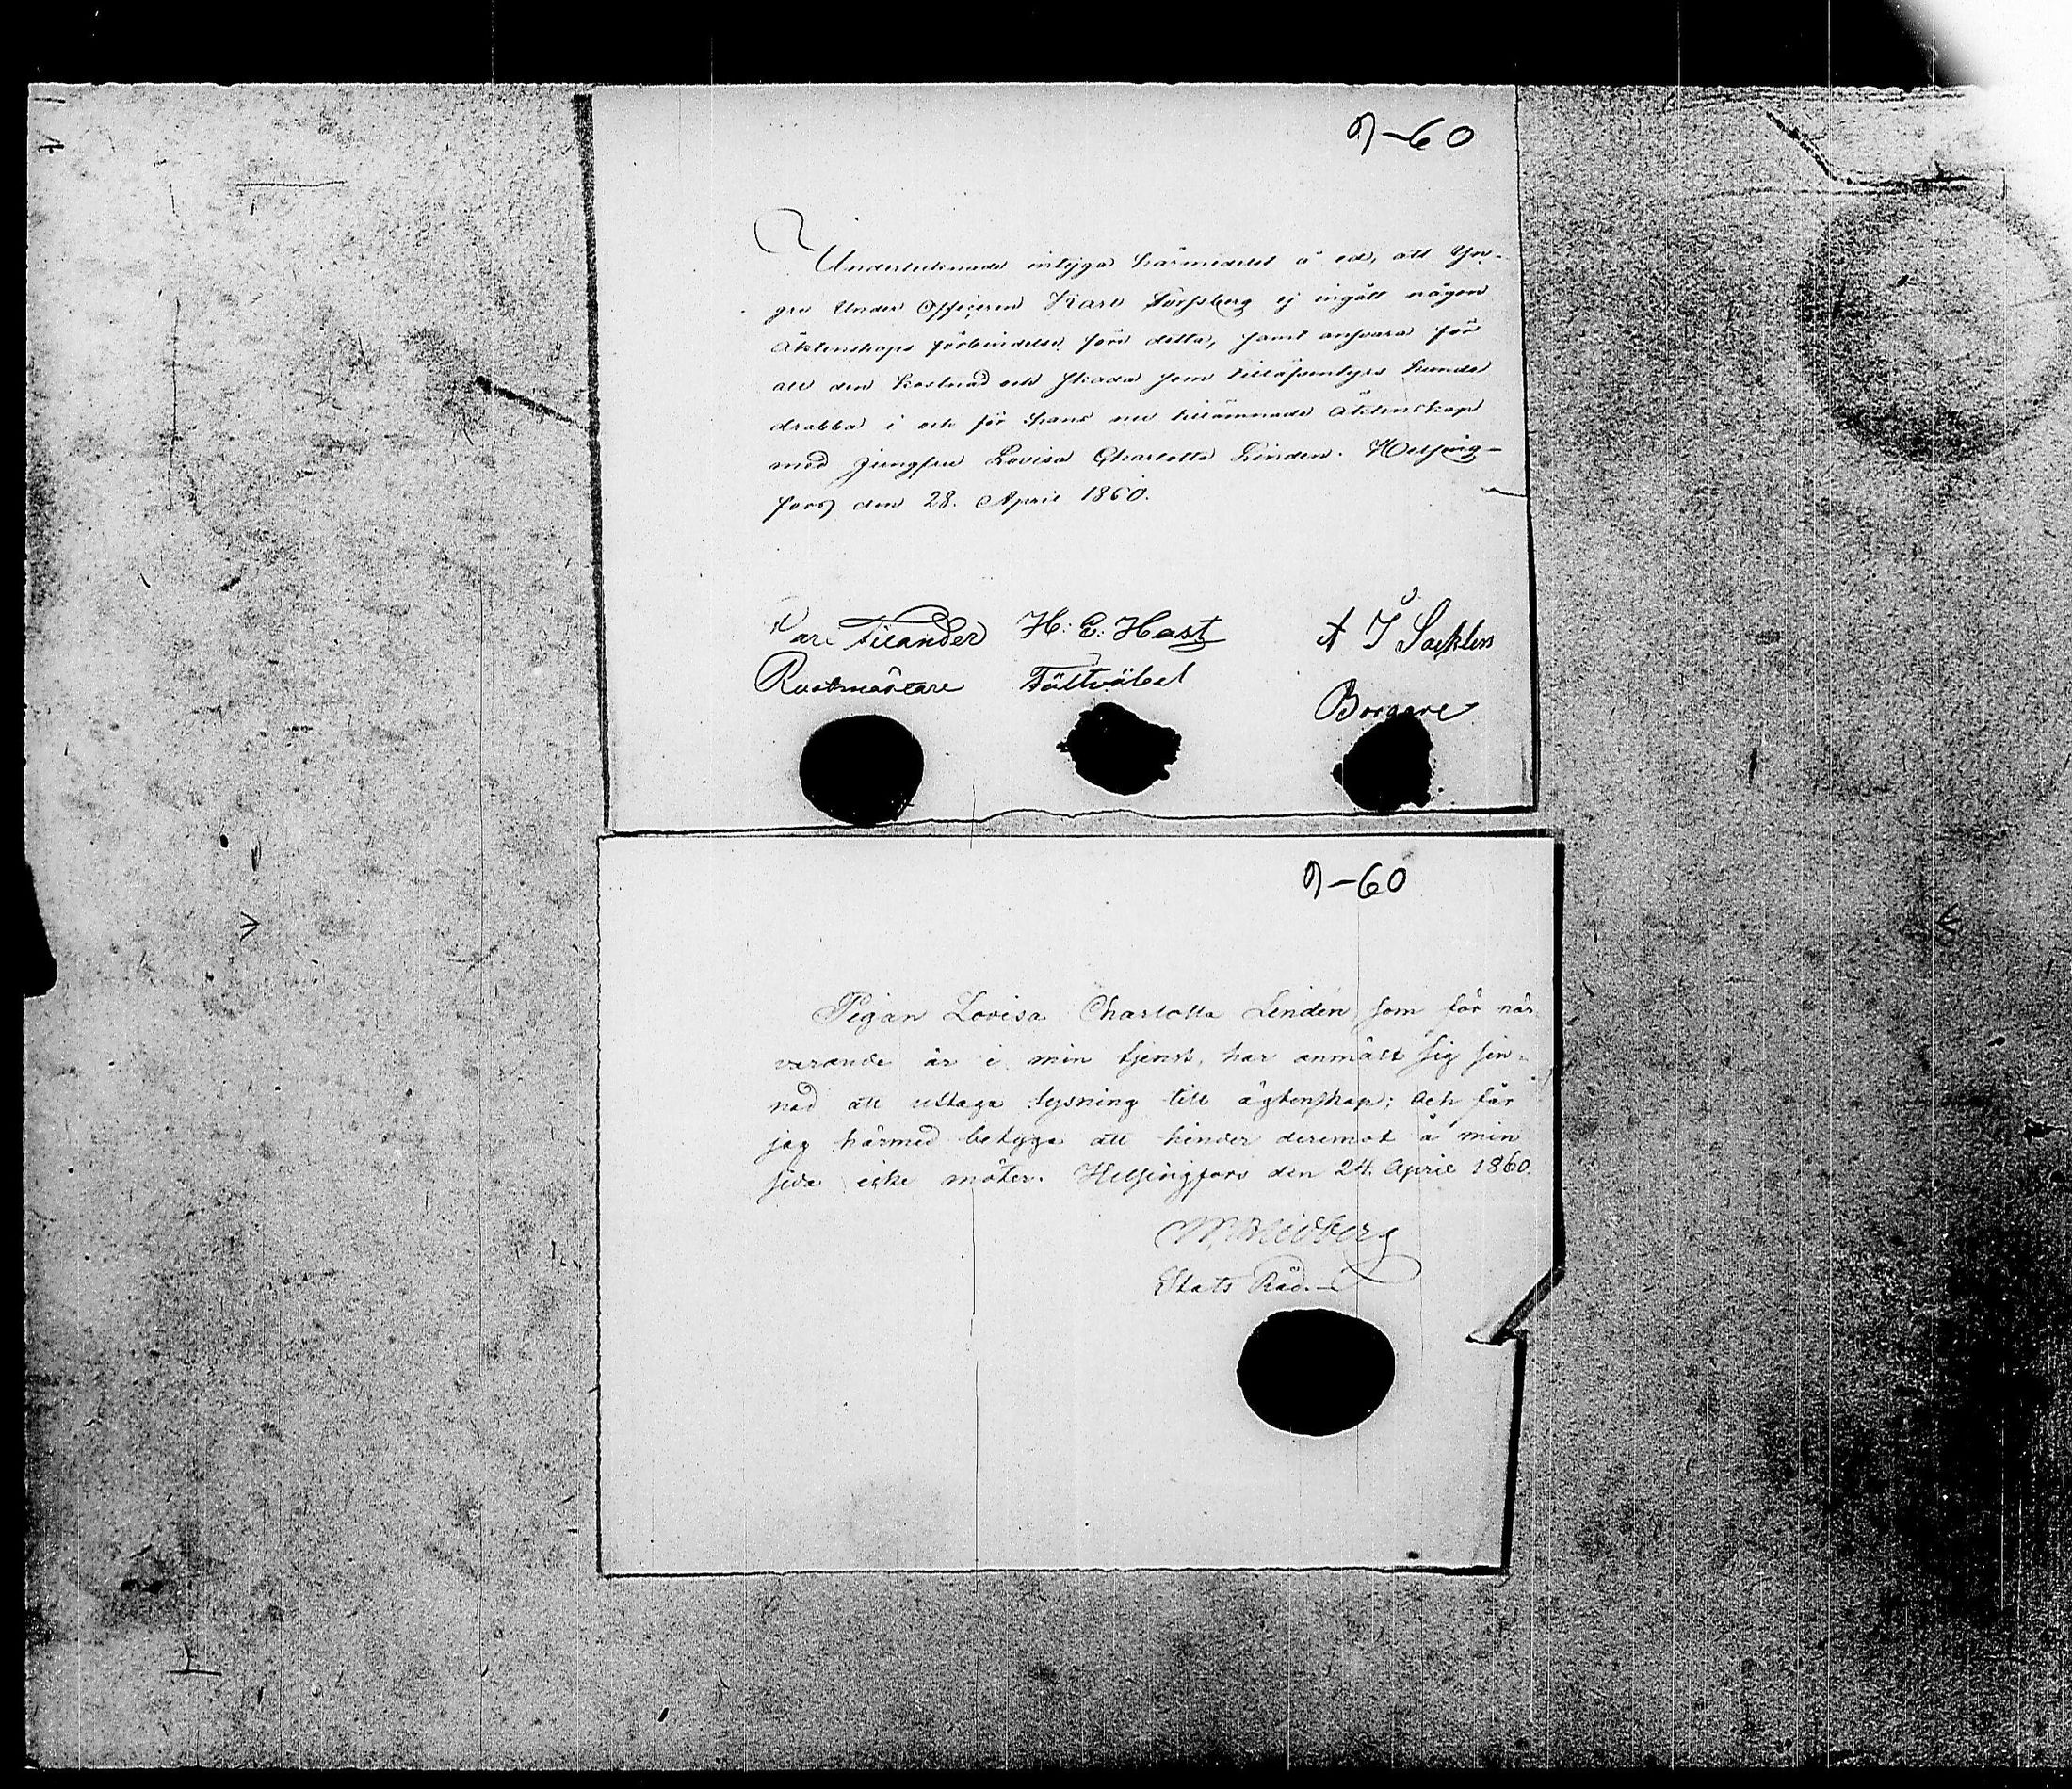 9-60
Undertecknade intyga härmedelst å ed, att Yn-
gre Under Officeren Karl Forssberg ej ingått någon
Äktenskaps förbindelse före detta, samt ansvara för
all den kostnad och skada som tilläfventyrs kunde
drabba i och för hans nu tillämnade Äktenskap
med Jungfru Lovisa Charlotta Linden. Helsing-
fors den 28. April 1860.
H. E. Hast
A J
Rustmästare Fältväbel
Borgare
9-60
Pigan Lovisa Charlotta Lindén som för när
varande är i min tjenst, har anmält sig sin-
nad att uttaga lysning till ägtenskap; och får
jag härmed betyga att hinder deremot å min
sida icke möter. Helsingfors den 24. April 1860.
Stats Råd.